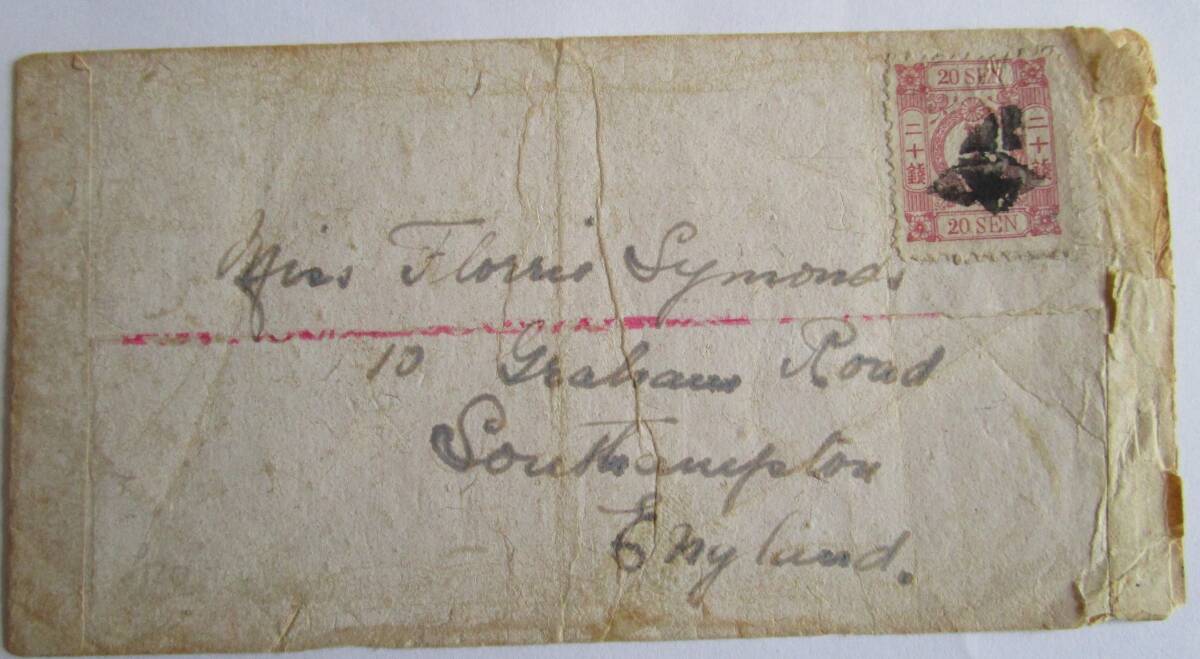 20 SEN
二十錢
二十錢
20 SEN
Miss Florrie Symonds
10 Graham Road
Southampton
England.